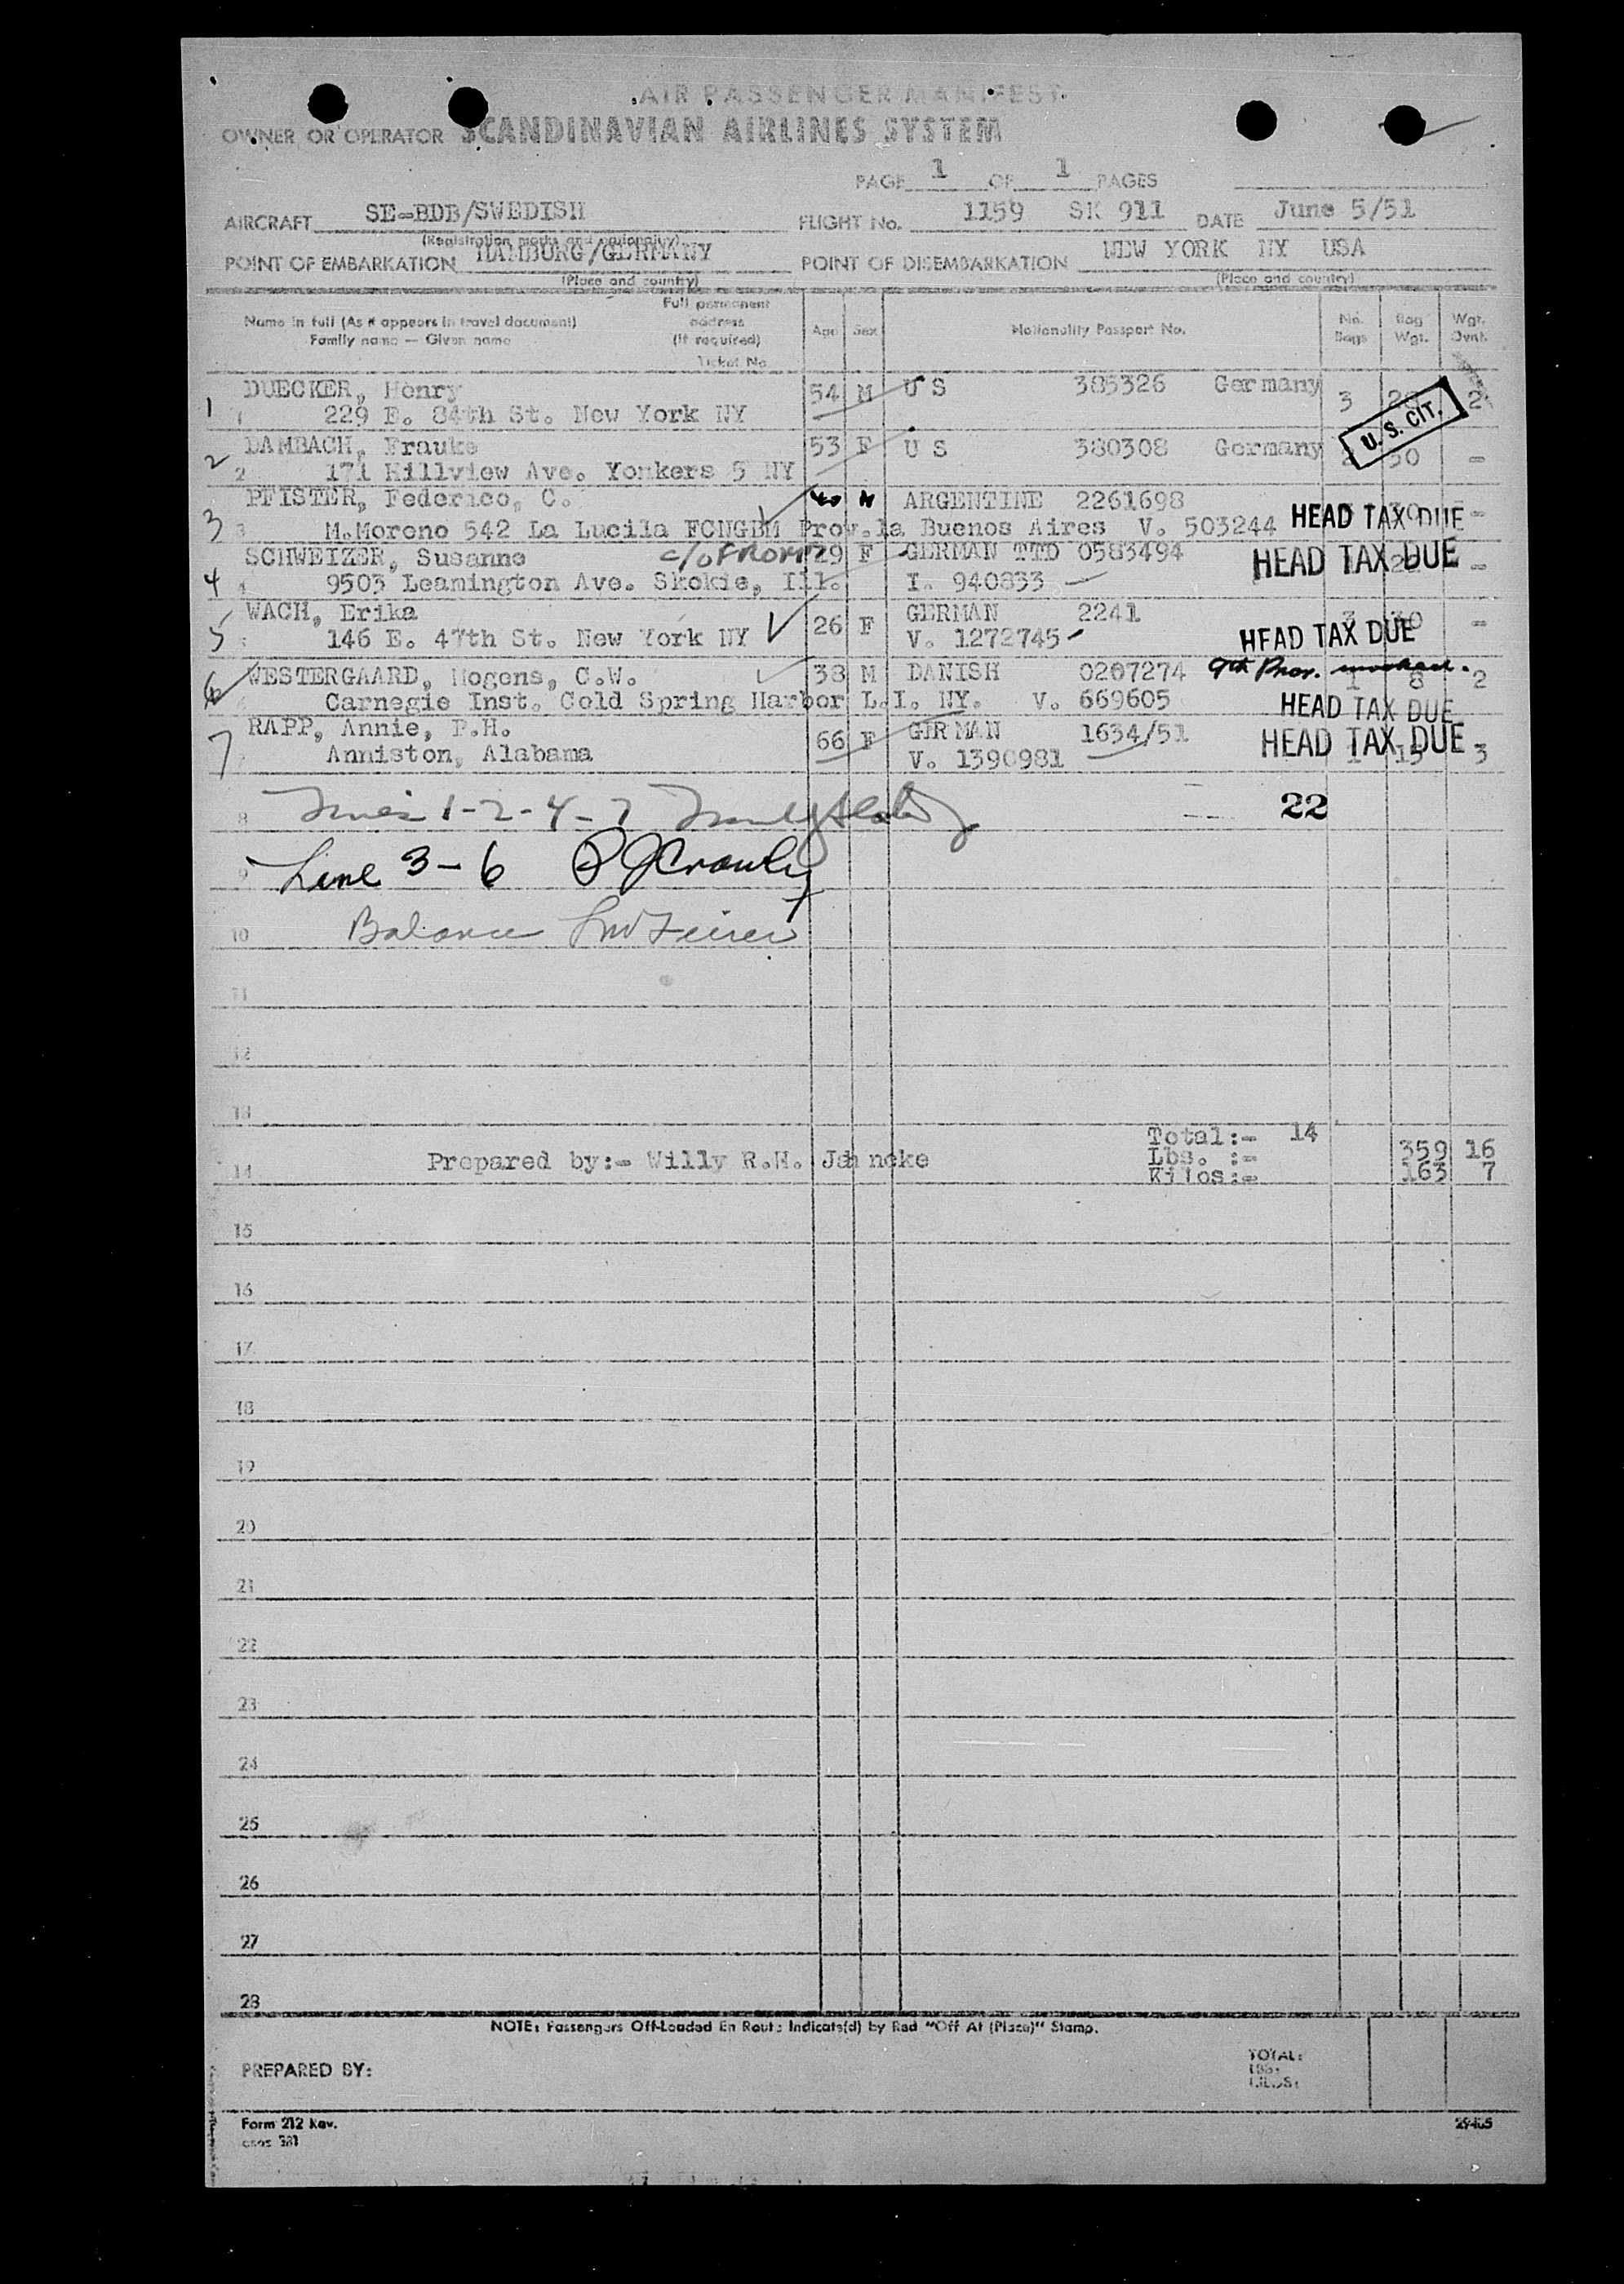 AIR PASSENGER MANIFEST
OWNER OR OPERATOR SCANDINAVIAN AIRLINES SYSTEM
PAGE 1 OF 1 PAGES
AIRCRAFT SE-BDB/SWEDISH FLIGHT No. 1159 SK 911 DATE June 5/51
(Registration marks and nationality)
POINT OF EMBARKATION HAMBURG/GERMANY POINT OF DISEMBARKATION NEW YORK NY USA
(Place and country) (Place and country)
Name in full (As it appears in travel document) Full permanent address (If required) Age Sex Nationality Passport No. No. Bags Bag Wgt. Wgt. Ovnt.
Family name — Given name Ticket No.
1 DUECKER, Henry 54 M U S 385326 Germany 3 2
1 229 E. 84th St. New York NY U. S. CIT.
2 DAMBACH, Frauke 53 F U S 380308 Germany 2 30 -
2 171 Hillview Ave. Yonkers 5 NY
3 PFISTER, Federico, C. 40 M ARGENTINE 2261698
3 M.Moreno 542 La Lucila FCNGBM Prov.la Buenos Aires V. 503244 HEAD TAX DUE -
4 SCHWEIZER, Susanne c/o FROMM 29 F GERMAN TTD 0583494 HEAD TAX DUE -
4 9503 Leamington Ave. Skokie, Ill. I. 940833
5 WACH, Erika 26 F GERMAN 2241 3 30 -
146 E. 47th St. New York NY V. 1272745 HEAD TAX DUE
6 WESTERGAARD, Mogens, C.W. 38 M DANISH 0207274 9th Prov. invoked. 1 8 2
Carnegie Inst. Cold Spring Harbor L.I. NY. V. 669605 HEAD TAX DUE
7 RAPP, Annie, P.H. 66 F GERMAN 1634/51 HEAD TAX DUE 1 15 3
Anniston, Alabama V. 1390981
8 Lines 1-2-4-7 22
9 Line 3-6
10 Balance
11
12
13
Total:- 14
14 Prepared by:- Willy R.H. Jahncke Lbs. :- 359 16
Kilos:- 163 7
15
16
17
18
19
20
21
22
23
24
25
26
27
28
NOTE: Passengers Off-Loaded En Route Indicate(d) by Red "Off At (Place)" Stamp.
PREPARED BY: TOTAL:
LBS:
KILOS:
Form 212 Rev. 29405